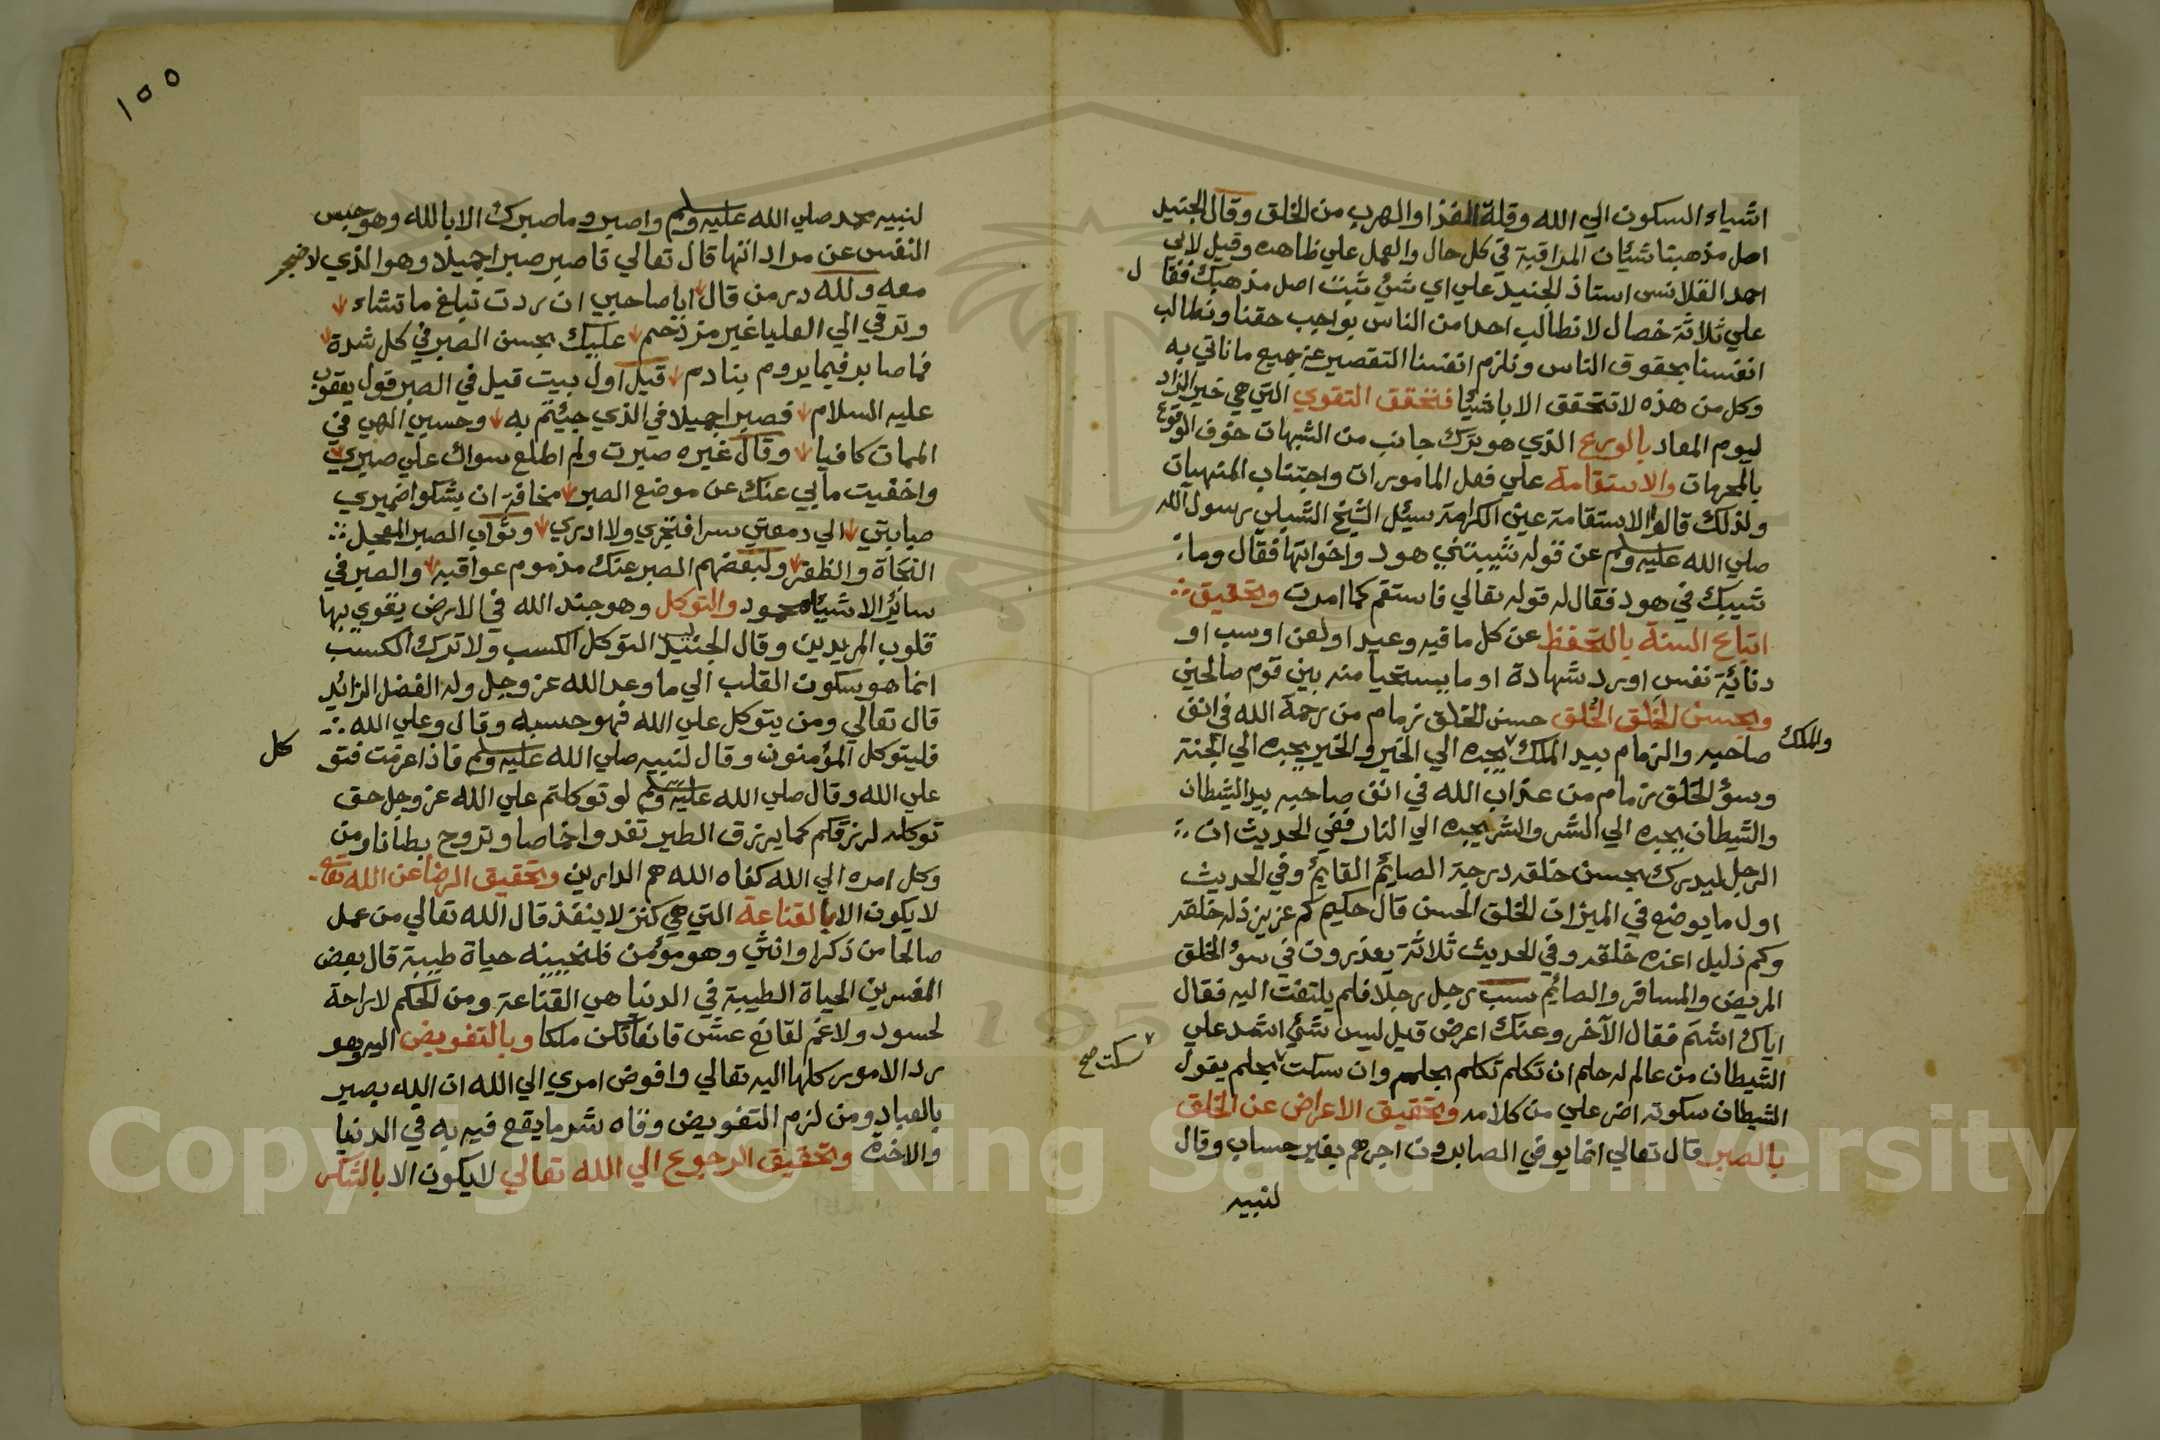 اشياء السكون الي الله وقلة الغذا والهرب من الخلق وقال الجنيد
اصل مذهبنا شيئان المراقبة في كل حال والعمل علي ظاهره وقيل لابي
احمد القلانسي استاذ الجنيد علي اي شئ ثبت اصل مذهبك فقال
علي ثلاثة خصال لا نطالب احدا من الناس بواجب حقنا ونطالب
انفسنا بحقوق الناس ونلزم انفسنا التقصير عن جميع ما ناتي به
وكل من هذه لا تتحقق الا باشيا فتحقق التقوي التي هي خير الزاد
ليوم المعاد بالورع الذي هو ترك جانب من الشبهات خوف الوقوع
بالمحرمات والاستقامة علي فعل المامورات واجتناب المنهيات
ولذلك قالوا الاستقامة عين الكرامة سيئل الشيخ الشبلي رسول الله
صلي الله عليه وسلم عن قوله شيبتني هود واخواتها فقال وما
شيبك في هود فقال له قوله تعالي فاستقم كما امرت وتحقيق
اتباع السنة بالتحفظ عن كل ما فيه وعيد او لعن او سب او
دنائية نفس او رد شهادة او ما يستحيا منه بين قوم صالحين
وبحسن الخلق الخلق حسن الخلق زمام من رحمة الله في انف
صاحبه والزمام بيد الملك يجره الي الخير والخير يجره الي الجنة
والملك
وسؤ الخلق زمام من عذاب الله في انف صاحبه بيد الشيطان
والشيطان يجره الي الشر والشر يجره الي النار ففي الحديث ان
الرجل ليدرك بحسن خلقه درجة الصايم القايم وفي الحديث
اول ما يوضع في الميزان الخلق الحسن قال حكيم كم عزيز ذله خلقه
وكم ذليل اعزه خلقه وفي الحديث ثلاثة يعذرون في سؤ الخلق
المريض والمسافر والصائم سب رجل رجلا فلم يلتفت اليه فقال
اياك اشتم فقال الآخر وعنك اعرض قيل ليس شئي اشد علي
الشيطان من عالم له حلم ان تكلم تكلم بحلم وان سكت بحلم يقول
سكت صح
الشيطان سكوته اضر علي من كلامه وتحقيق الاعراض عن الخلق
بالصبر قال تعالي انما يوفي الصابرون اجرهم بغير حساب وقال
لنبيه
١٥٥
لنبيه محمد صلي الله عليه وسلم واصبر وما صبرك الا بالله وهو حبس
النفس عن مراداتها قال تعالي فاصبر صبرا جميلا وهو الذي لا ضجر
معه ولله در من قال ايا صاحبي ان ردت تبلغ ما تشاء
وترقي الي العليا غير مزخم عليك بحسن الصبر في كل شدة
فما صابر فيما يروم بنادم قيل اول بيت قيل في الصبر قول يعقوب
عليه السلام فصبرا جميلا في الذي جيئتم به وحسبي الهي في
الممات كافيا وقال غيره صبرت ولم اطلع سواك علي صبري
واخفيت ما بي عنك عن موضع الصبر مخافة ان يشكوا ضميري
صبابتي الي دمعتي سرا فتجري ولا ادري وثواب الصبر المعجل
النجاة والظفر ولبعضهم الصبر عنك مذموم عواقبه والصبر في
سائر الاشياء محمود والتوكل وهو جند الله في الارض يقوي بها
قلوب المريدين وقال الجنيد ليس التوكل الكسب ولا ترك الكسب
انما هو سكون القلب الي ما وعد الله عز وجل وله الفضل الزائد
قال تعالي ومن يتوكل علي الله فهو حسبه وقال وعلي الله
فليتوكل المؤمنون وقال لنبيه صلي الله عليه وسلم فاذا عزمت فتو
كل
علي الله وقال صلي الله عليه وسلم لو توكلتم علي الله عز وجل حق
توكله لرزقكم كما يرزق الطير تغدوا خماصا وتروح بطانا ومن
وكل امره الي الله كفاه الله هم الدارين وتحقيق الرضا عن الله تعا
لا يكون الا بالقناعة التي هي كنز لا ينفذ قال الله تعالي من عمل
صالحا من ذكر او انثي وهو مؤمن فلنحيينه حياة طيبة قال بعض
المفسرين الحياة الطيبة في الدنيا هي القناعة ومن الحكم لا راحة
لحسود ولا غم لقانع عش قانعا تكن ملكا وبالتفويض اليه وهو
رد الامور كلها اليه تعالي وافوض امري الي الله ان الله بصير
بالعباد ومن لزم التفويض وقاه شر ما يقع فيه به في الدنيا
والاخرة وتحقيق الرجوع الي الله تعالي لا يكون الا بالشكر
Copyright © King Saud University